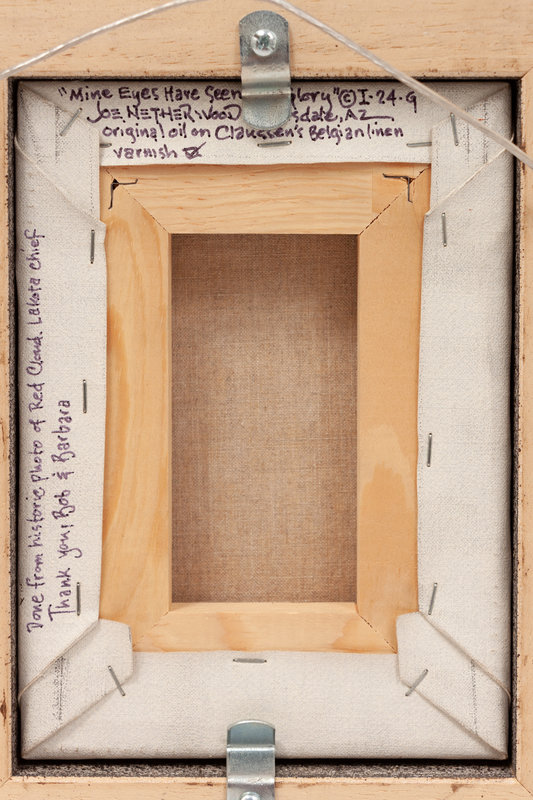 "Mine Eyes Have Seen glory" © I·24·G
JOE NETHERWOOD sdale, AZ
original oil on Claussen's Belgian linen
varnish ☑
Done from historic photo of Red Cloud. Lakota Chief
Thank you! Bob & Barbara